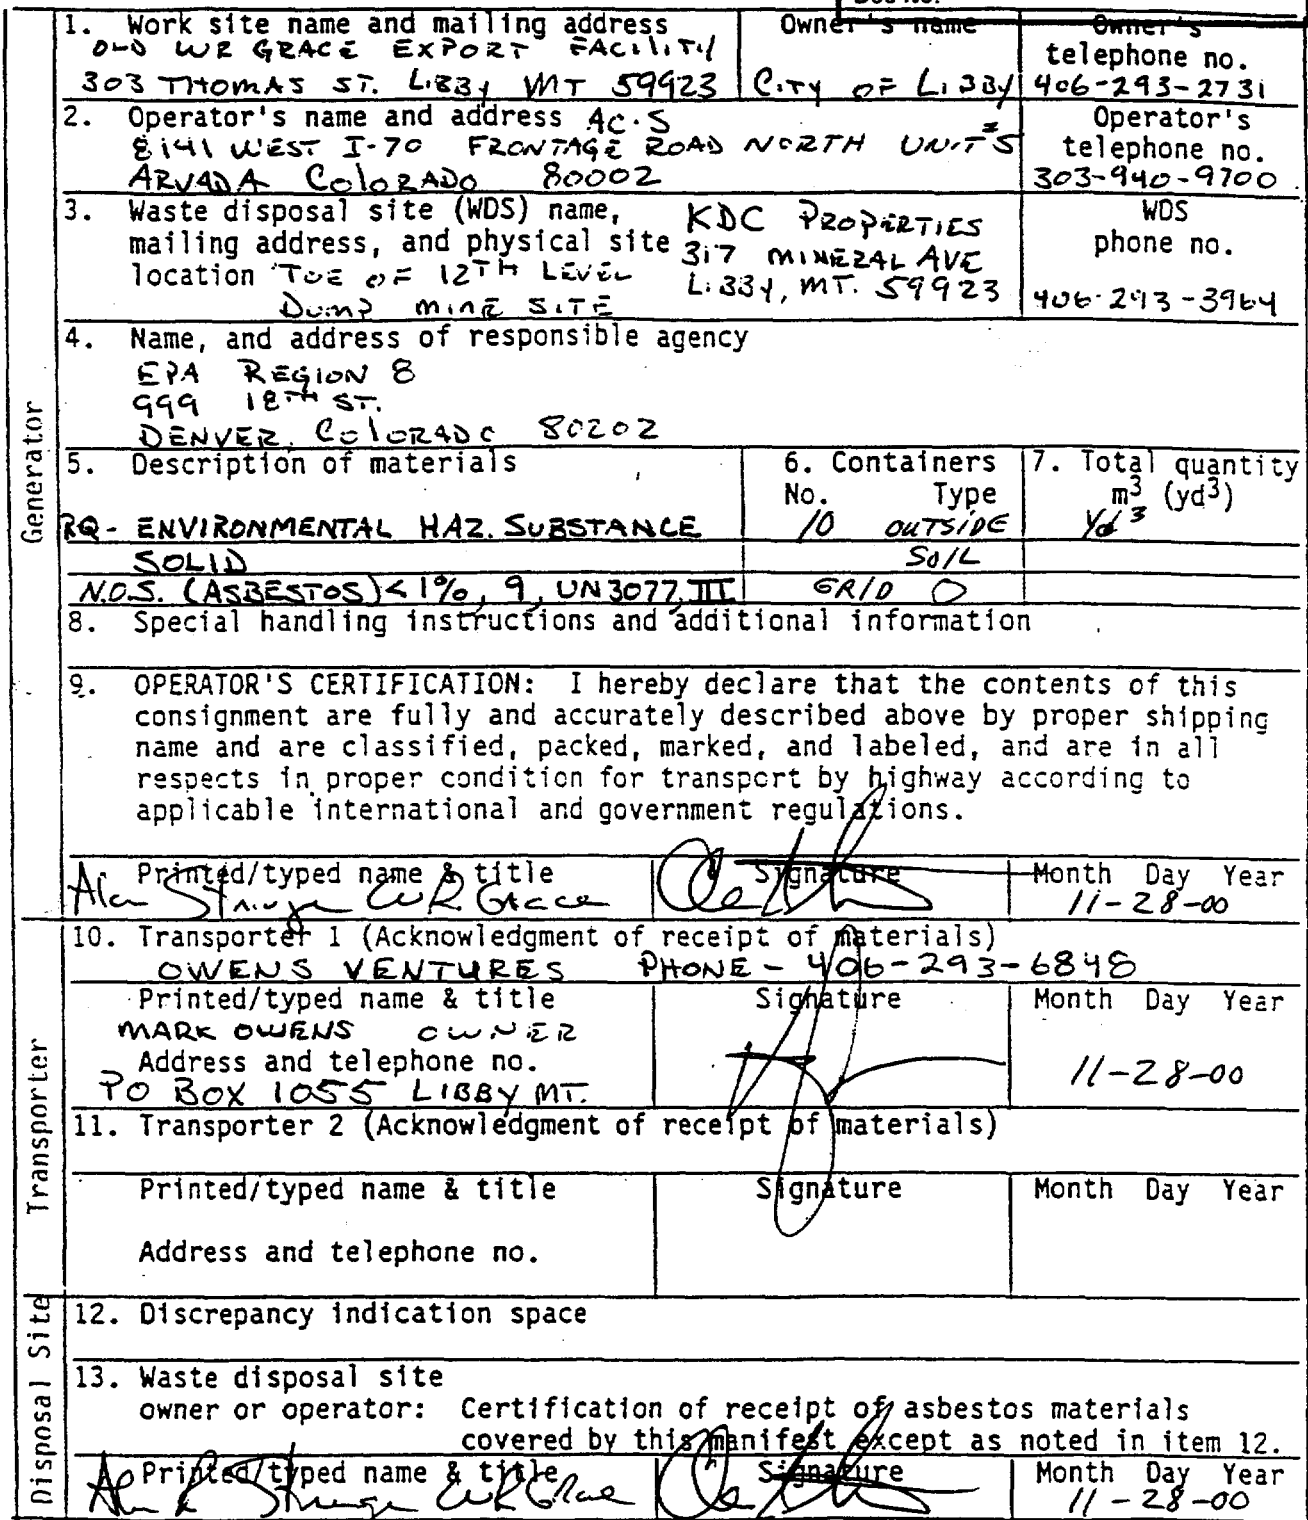 1. Work site name and mailing address
OLD WR GRACE EXPORT FACILITY
303 THOMAS ST. LIBBY MT 59923
Owner's name
CITY OF LIBBY
Owner's
telephone no.
406-293-2731
2. Operator's name and address AC-S
8141 WEST I-70 FRONTAGE ROAD NORTH UNIT #5
ARVADA COLORADO 80002
Operator's
telephone no.
303-940-9700
3. Waste disposal site (WDS) name,
mailing address, and physical site
location TOE OF 12TH LEVEL
DUMP MINE SITE
KDC PROPERTIES
317 MINERAL AVE
LIBBY, MT. 59923
WDS
phone no.
406-293-3964
4. Name, and address of responsible agency
EPA REGION 8
999 18TH ST.
DENVER, COLORADO 80202
Generator
5. Description of materials
6. Containers
No. Type
7. Total quantity
m3 (yd3)
RQ - ENVIRONMENTAL HAZ. SUBSTANCE
10 OUTSIDE
Yd3
SOLID
SOIL
N.O.S. (ASBESTOS) < 1%, 9, UN3077, III
GRID O
8. Special handling instructions and additional information
9. OPERATOR'S CERTIFICATION: I hereby declare that the contents of this
consignment are fully and accurately described above by proper shipping
name and are classified, packed, marked, and labeled, and are in all
respects in proper condition for transport by highway according to
applicable international and government regulations.
Printed/typed name & title
Alan Stringer WR Grace
Signature
Month Day Year
11-28-00
Transporter
10. Transporter 1 (Acknowledgment of receipt of materials)
OWENS VENTURES PHONE - 406-293-6848
Printed/typed name & title
MARK OWENS OWNER
Address and telephone no.
PO BOX 1055 LIBBY MT.
Signature
Month Day Year
11-28-00
11. Transporter 2 (Acknowledgment of receipt of materials)
Printed/typed name & title
Signature
Month Day Year
Address and telephone no.
Disposal Site
12. Discrepancy indication space
13. Waste disposal site
owner or operator: Certification of receipt of asbestos materials
covered by this manifest except as noted in item 12.
Printed/typed name & title
Alan R Stringer WR Grace
Signature
Month Day Year
11-28-00